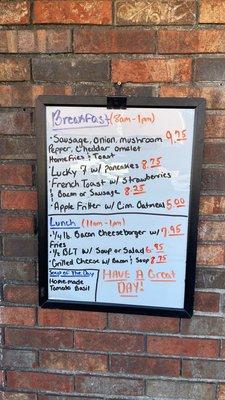 Breakfast (8am-1pm)
• Sausage, onion, mushroom 9.25
Pepper, Cheddar omelet
Homefries & Toast
• Lucky 7 w/ Pancakes 8.75
• French Toast w/ Strawberries
& Bacon or Sausage 8.25
• Apple Fritter w/ Cinn. Oatmeal 5.00
Lunch (11am-1pm)
• 1/4 lb. Bacon Cheeseburger w/ 7.95
Fries
• 1/2 BLT w/ Soup or Salad 6.95
• Grilled Cheese w/ Bacon & Soup 8.75
Soup of The Day
Homemade
Tomato Basil
HAVE A Great
DAY!